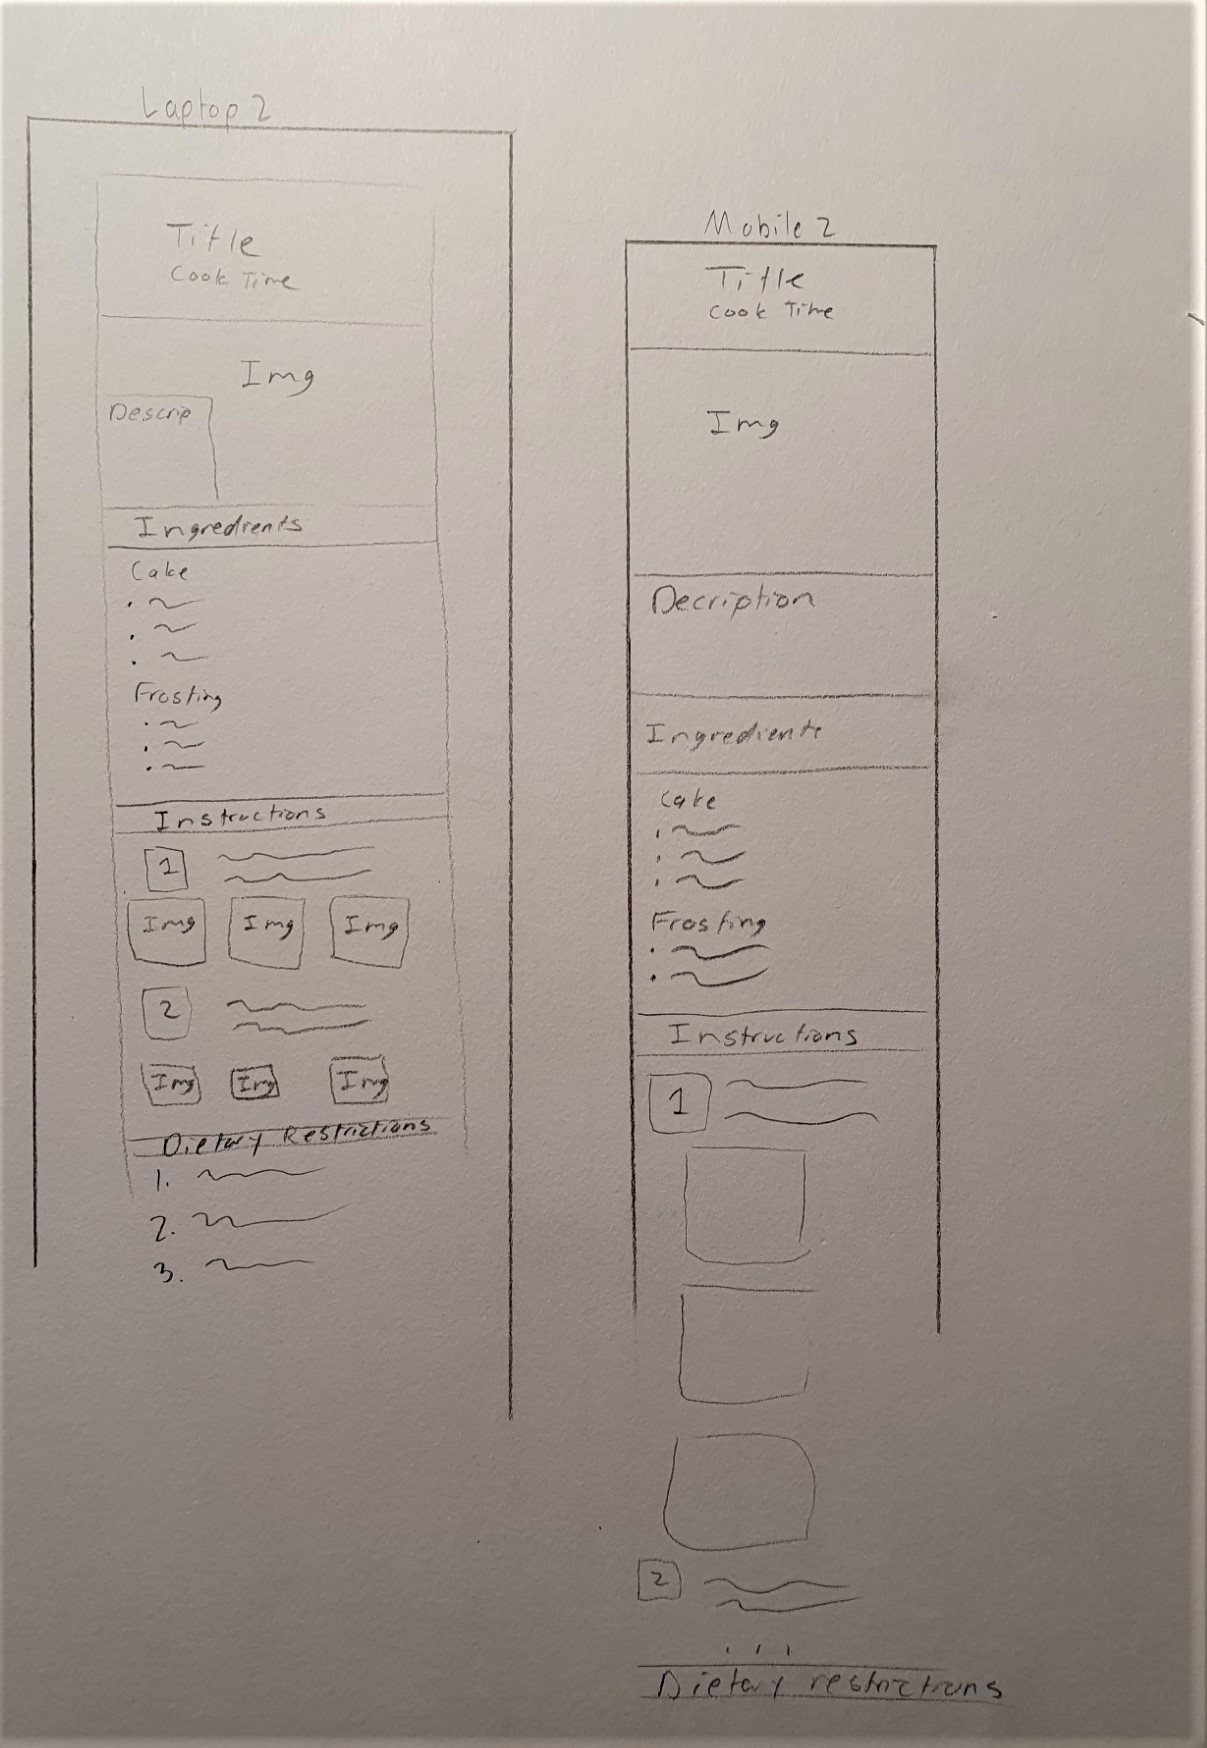 Laptop 2
Title
Cook Time
Img
Descrip
Ingredients
Cake
Frosting
Instructions
1
Img Img Img
2
Img Img Img
Dietary Restrictions
1.
2.
3.
Mobile 2
Title
Cook Time
Img
Decription
Ingredients
Cake
Frosting
Instructions
1
2
...
Dietary restrictions